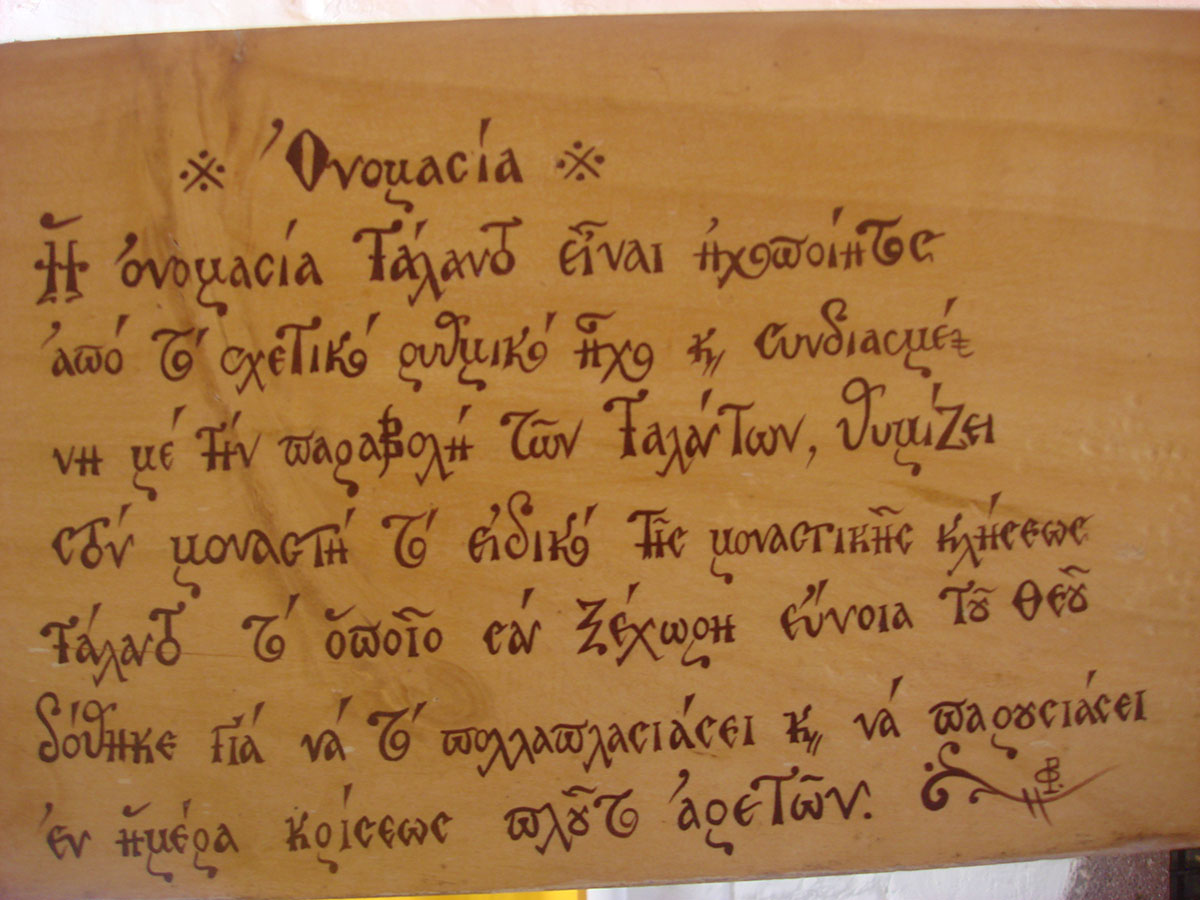 ※ Ὀνομασία ※
Ἡ ὀνομασία Τάλαντο εἶναι ἠχοποίητος
ἀπό τό σχετικό ρυθμικό ἦχο κ, συνδιασμέ-
νη μέ τήν παραβολή τῶν Ταλάντων, θυμίζει
στόν μοναστή τό εἰδικό τῆς μοναστικῆς κλήσεως
Τάλαντο τό ὁποῖο σάν ξέχωρη εὔνοια τοῦ Θεοῦ
δόθηκε γιά νά τό πολλαπλασιάσει κ, νά παρουσιάσει
ἐν ἡμέρα κρίσεως πλοῦτο ἀρετῶν.